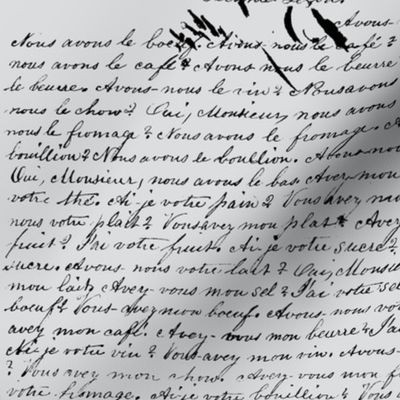 Avons-
Nous avons le boeuf. Avons-nous le café?
nous avons le café? Avons nous le beurre
le beurre. Avons-nous le vin? Nous avons
nous le chow? Oui, Monsieur, nous avons
nous le fromage? Nous avons le fromage. A
bouillion? Nous avons le boullion. Avons-nou
Oui, Monsieur, nous avons le bas. Avez-mon
votre thé. Ai-je votre pain? Vous avez mon
nous votre plait? Vous avez mon plat. Avez
fruit? J'ai votre fruit. Ai-je votre sucre?
sucre. Avons-nous votre lait? Oui, Monsieu
mon lait, Avez-vous mon sel? J'ai votre sel
boeuf? Vous-avez mon boeuf. Avons-nous vot
avez mon café. Avez-vous mon beurre? J'ai
Ai-je votre vin? Vous-avez mon vin. Avons-
? Vous avez mon chow. Avez-vous mon f
votre fromage. Ai-je votre bouillion? Vous